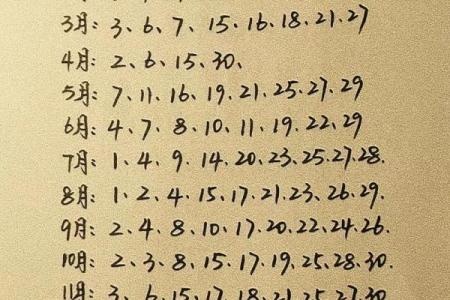 3月: 3、6、7、15、16、18、21、27
4月: 2、6、15、30、
5月: 7、11、16、19、21、25、27、29
6月: 4、7、8、10、11、19、22、29
7月: 1、4、9、14、20、23、25、27、28.
8月: 1、2、4、15、17、21、23、26、29.
9月: 2、4、8、10、17、20、22、24、26.
10月: 2、3、8、15、17、19、25、28、30.
11月: 3、6、15、17、18、21、25、27、30